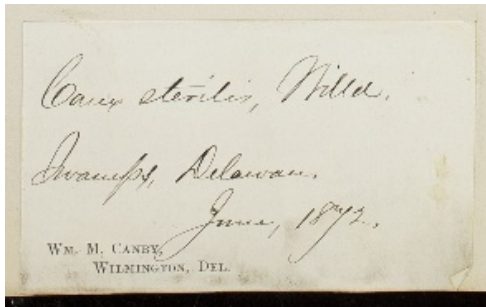 Carex sterilis, Willd.
Swamps, Delaware.
June, 1872.
WM. M. CANBY,
WILMINGTON, DEL.